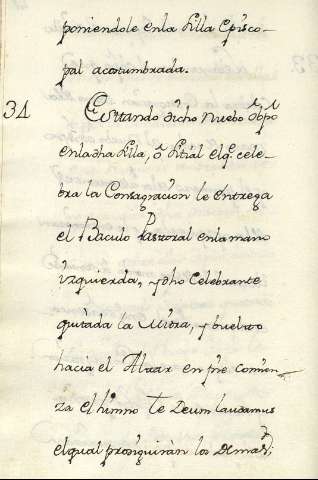 poniendole enla Silla Epīsco-
pal acostumbrada.
34 Estando dicho nuebo obpo
enladha Silla, o Sitial elqe. cele-
bra la Consagracion le entrega
el Baculo Pastoral enlamano
izquierda, ydho Celebrante
quitada la Mitra, ybuelto
hacia el Altar en pie comien-
za el himno te Deum laudamus
elqual prosiguiràn los demas;